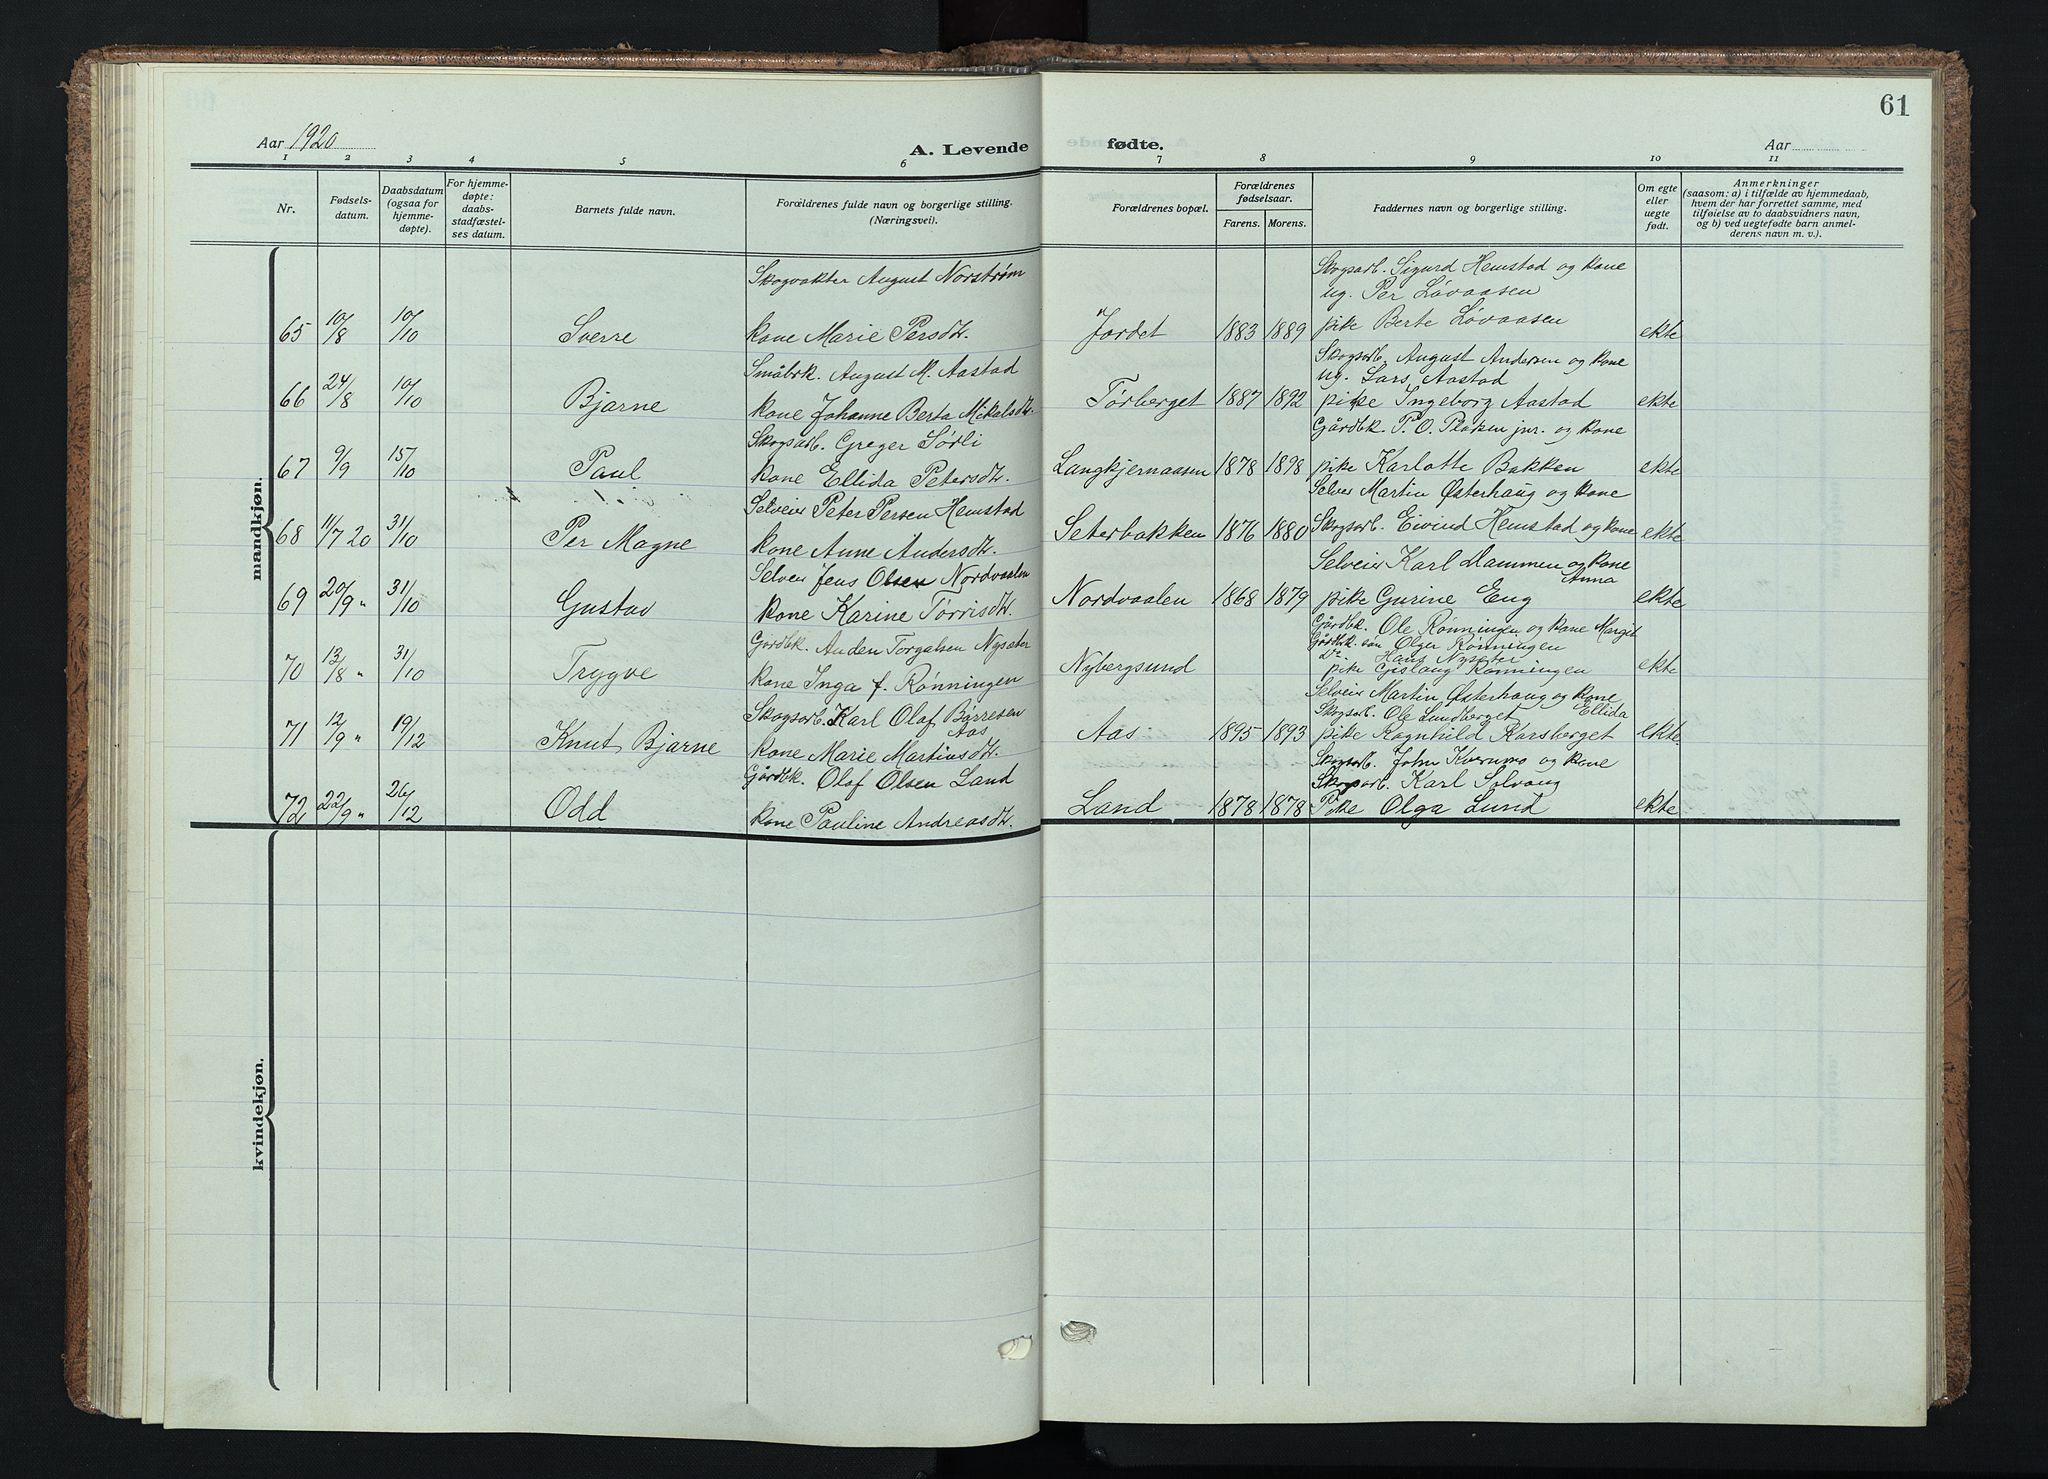 61
Aar 1920
A. Levende
fødte.
Aar
1 2 3 4 5 6 7 8 9 10 11
Nr.
Fødsels-
datum.
Daabsdatum
(ogsaa for
hjemme-
døpte).
For hjemme-
døpte:
daabs-
stadfæstel-
ses datum.
Barnets fulde navn.
Forældrenes fulde navn og borgerlige stilling.
(Næringsvei).
Forældrenes bopæl.
Forældrenes
fødselsaar.
Farens. Morens.
Faddernes navn og borgerlige stilling.
Om egte
eller
uegte
født.
Anmerkninger
(saasom: a) i tilfælde av hjemmedaab,
hvem der har forrettet samme, med
tilføielse av to daabsvidners navn,
og b) ved uegtefødte barn anmel-
derens navn m. v.).
mandkjøn.
Skogvokter August Norstrøm
Skogsarb. Sigurd Hemstad og kone
ug. Per Løvaasen
65 10/8 10/10 Sverre kone Marie Persdtr. Jordet 1883 1889 pike Berte Løvaasen ekte
Småbrk. August M. Aastad
Skogsarb. August Andersen og kone
ug. Lars Aastad
66 24/8 10/10 Bjarne kone Johanne Berta Mikalsdtr. Tørberget 1887 1892 pike Ingeborg Aastad ekte
Skogsarb. Greger Sørli
Gårdbk. P. O. Plassen jnr. og kone
67 9/9 15/10 Paul kone Ellida Petersdtr. Langkjernaasen 1878 1898 pike Karlotte Bakken ekte
Selveier Peter Persen Hemstad
Selveier Martin Østerhaug og kone
68 11/7 20 31/10 Per Magne kone Anne Andersdtr. Seterbakken 1876 1880 Skogsarb. Eivind Hemstad og kone ekte
Selveier Jens Olsen Nordvaalen
Selveier Karl Hammen og kone
Anna
69 20/9 " 31/10 Gustav kone Karine Tørrisdtr. Nordvaalen 1868 1879 pike Gurine Eng ekte
Gårdbk. Auden Torgalsen Nysæter
Gårdbk. Ole Rønningen og kone Margit
Gårdbk. søn Olger Rønningen
Do Hans Nyseter
70 13/8 " 31/10 Trygve kone Inga f. Rønningen Nybergsund pike Gislaug Rønningen ekte
Skogsarb. Karl Olaf Børresen
Aas
Selveier Martin Østerhaug og kone
Ellida
Skogsarb. Ole Lundberget
71 12/9 " 19/12 Knut Bjarne kone Marie Martinsdtr. Aas 1895 1893 pike Ragnhild Karsberget ekte.
Gårdbk. Olaf Olsen Land
Skogsarb. John Kvernmo og kone
Skogsarb. Karl Solvang
72 22/9 " 26/12 Odd kone Pauline Andreasdtr. Land 1878 1878 Pike Olga Lund ekte
kvindekjøn.